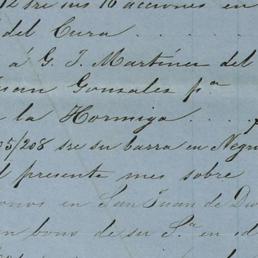 12 sre sus 16 acciones en
del Cura . . . . .
á G. J. Martinez del
Juan Gonzales pª
la Hormiga . . . .
35/208 sre su barra en Negri
el presente mes sobre
onos en San Juan de Dio
n bono de su Sª en id